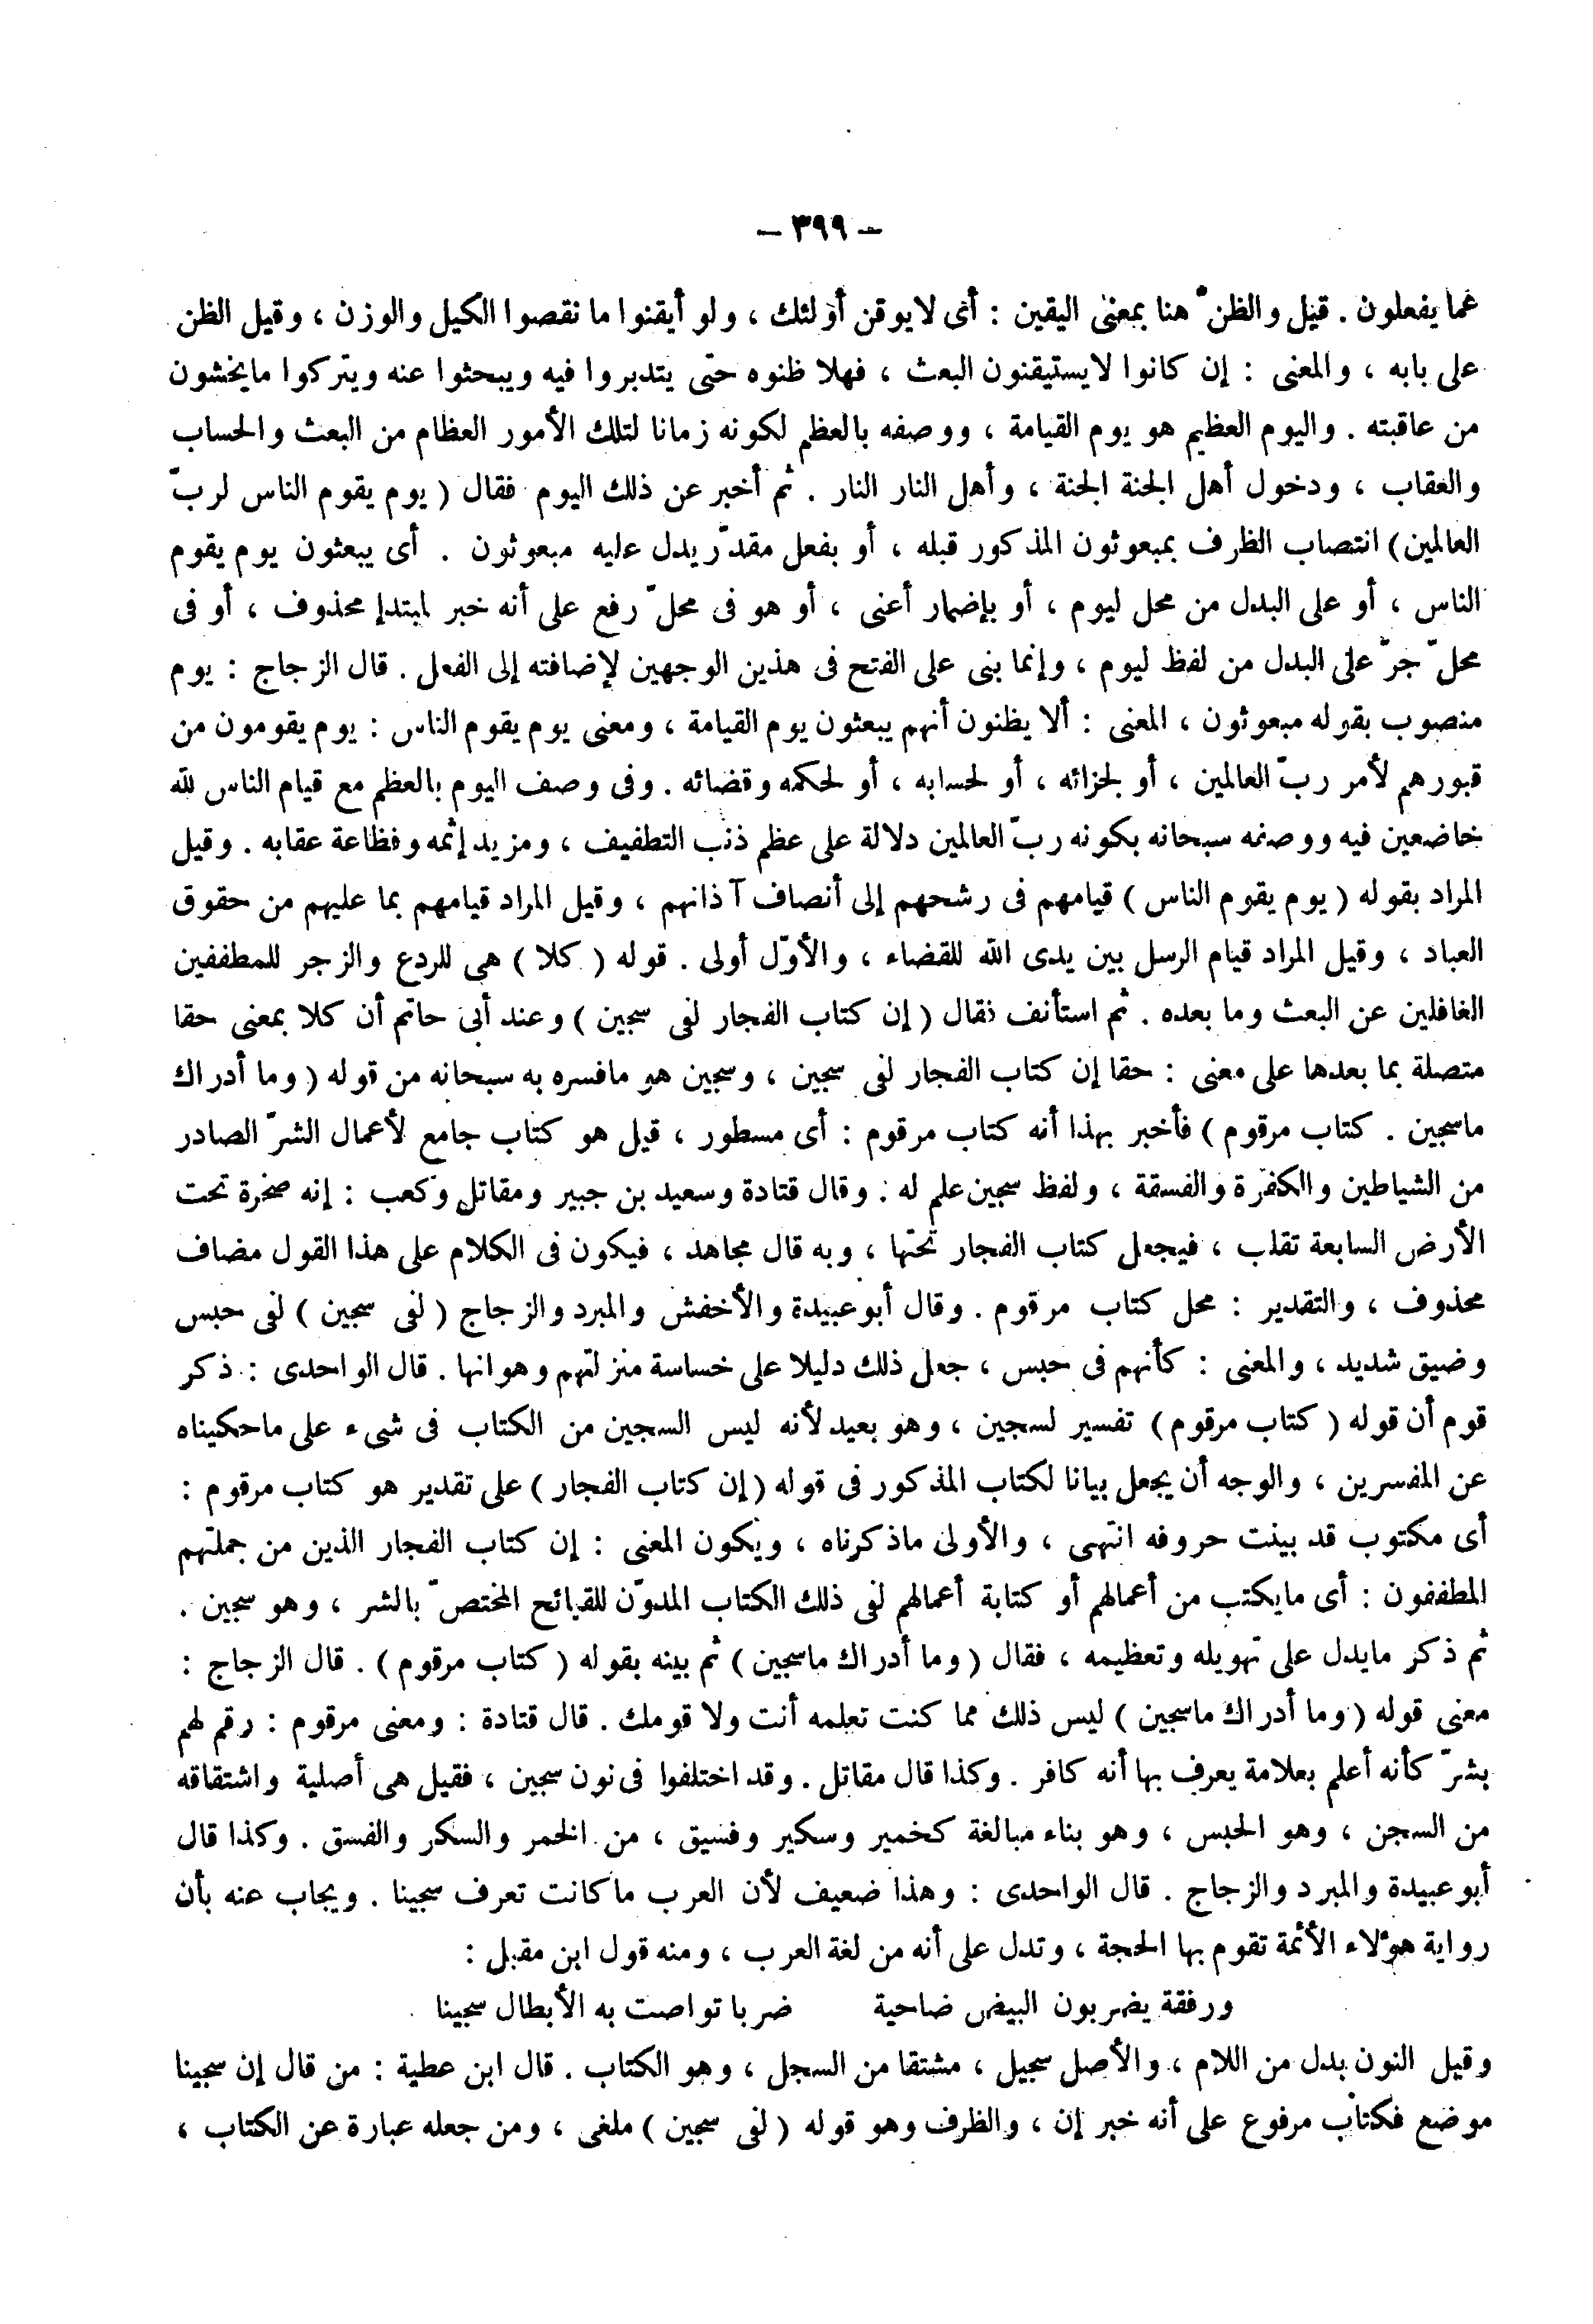 - ٣٩٩ -
عما يفعلون . قيل والظنّ هنا بمعنى اليقين : أى لايوقن أولئك ، ولو أيقنوا ما نقصوا الكيل والوزن ، وقيل الظن
على بابه ، والمعنى : إن كانوا لايستيقنون البعث ، فهلا ظنوه حتى يتدبروا فيه ويبحثوا عنه ويتركوا مايخشون
من عاقبته . واليوم العظيم هو يوم القيامة ، ووصفه بالعظم لكونه زمانا لتلك الأمور العظام من البعث والحساب
والعقاب ، ودخول أهل الجنة الجنة ، وأهل النار النار . ثم أخبر عن ذلك اليوم فقال ( يوم يقوم الناس لربّ
العالمين) انتصاب الظرف بمبعوثون المذكور قبله ، أو بفعل مقدّر يدل عليه مبعوثون . أى يبعثون يوم يقوم
الناس ، أو على البدل من محل ليوم ، أو بإضمار أعنى ، أو هو فى محلّ رفع على أنه خبر لمبتدإ محذوف ، أو فى
محلّ جرّ على البدل من لفظ ليوم ، وإنما بنى على الفتح فى هذين الوجهين لإضافته إلى الفعل . قال الزجاج : يوم
منصوب بقوله مبعوثون ، المعنى : ألا يظنون أنهم يبعثون يوم القيامة ، ومعنى يوم يقوم الناس : يوم يقومون من
قبورهم لأمر ربّ العالمين ، أو لجزائه ، أو لحسابه ، أو لحكمه وقضائه . وفى وصف اليوم بالعظم مع قيام الناس لله
خاضعين فيه ووصفه سبحانه بكونه ربّ العالمين دلالة على عظم ذنب التطفيف ، ومزيد إثمه وفظاعة عقابه . وقيل
المراد بقوله ( يوم يقوم الناس ) قيامهم فى رشحهم إلى أنصاف آذانهم ، وقيل المراد قيامهم بما عليهم من حقوق
العباد ، وقيل المراد قيام الرسل بين يدى الله للقضاء ، والأوّل أولى . قوله ( كلا ) هى للردع والزجر للمطففين
الغافلين عن البعث وما بعده . ثم استأنف فقال ( إن كتاب الفجار لفى سجين ) وعند أبى حاتم أن كلا بمعنى حقا
متصلة بما بعدها على معنى : حقا إن كتاب الفجار لفى سجين ، وسجين هو مافسره به سبحانه من قوله ( وما أدراك
ماسجين . كتاب مرقوم ) فأخبر بهذا أنه كتاب مرقوم : أى مسطور ، قيل هو كتاب جامع لأعمال الشرّ الصادر
من الشياطين والكفرة والفسقة ، ولفظ سجين علم له : وقال قتادة وسعيد بن جبير ومقاتل وكعب : إنه صخرة تحت
الأرض السابعة تقلب ، فيجعل كتاب الفجار تحتها ، وبه قال مجاهد ، فيكون فى الكلام على هذا القول مضاف
محذوف ، والتقدير : محل كتاب مرقوم . وقال أبو عبيدة والأخفش والمبرد والزجاج ( لفى سجين ) لفى حبس
وضيق شديد ، والمعنى : كأنهم فى حبس ، جعل ذلك دليلا على خساسة منزلتهم وهوانها . قال الواحدى : ذكر
قوم أن قوله ( كتاب مرقوم ) تفسير لسجين ، وهو بعيد لأنه ليس السجين من الكتاب فى شىء على ماحكيناه
عن المفسرين ، والوجه أن يجعل بيانا لكتاب المذكور فى قوله (إن كتاب الفجار ) على تقدير هو كتاب مرقوم :
أى مكتوب قد بينت حروفه انتهى ، والأولى ماذكرناه ، ويكون المعنى : إن كتاب الفجار الذين من جملتهم
المطففون : أى مايكتب من أعمالهم أو كتابة أعمالهم لفى ذلك الكتاب المدوّن للقبائح المختصّ بالشر ، وهو سجين .
ثم ذكر مايدل على تهويله وتعظيمه ، فقال ( وما أدراك ماسجين ) ثم بينه بقوله ( كتاب مرقوم ) . قال الزجاج :
معنى قوله ( وما أدراك ماسجين ) ليس ذلك مما كنت تعلمه أنت ولا قومك . قال قتادة : ومعنى مرقوم : رقم لهم
بشرّ كأنه أعلم بعلامة يعرف بها أنه كافر . وكذا قال مقاتل . وقد اختلفوا فى نون سجين ، فقيل هى أصلية واشتقاقه
من السجن ، وهو الحبس ، وهو بناء مبالغة كخمير وسكير وفسيق ، من الخمر والسكر والفسق . وكذا قال
أبو عبيدة والمبرد والزجاج . قال الواحدى : وهذا ضعيف لأن العرب ماكانت تعرف سجينا . ويجاب عنه بأن
رواية هؤلاء الأئمة تقوم بها الحجة ، وتدل على أنه من لغة العرب ، ومنه قول ابن مقبل :
ورفقة يضربون البيض ضاحية ضربا تواصت به الأبطال سجينا
وقيل النون بدل من اللام ، والأصل سجيل ، مشتقا من السجل ، وهو الكتاب . قال ابن عطية : من قال إن سجينا
موضع فكتاب مرفوع على أنه خبر إن ، والظرف وهو قوله ( لفى سجين ) ملغى ، ومن جعله عبارة عن الكتاب ،